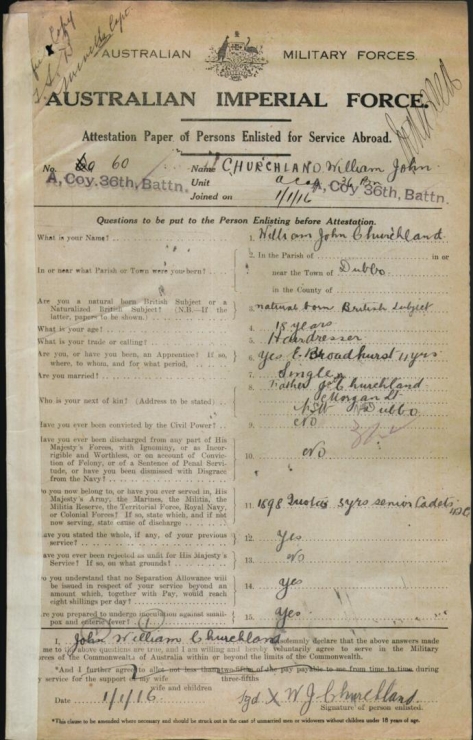 AUSTRALIAN MILITARY FORCES.
AUSTRALIAN IMPERIAL FORCE.
Attestation Paper of Persons Enlisted for Service Abroad.
No. 60 Name CHURCHLAND William John
A, Coy. 36th, Battn. Unit A, Coy 36th, Battn.
Joined on 1/1/16
Questions to be put to the Person Enlisting before Attestation.
What is your Name? 1. William John Churchland
In or near what Parish or Town were you born? 2. In the Parish of in or
near the Town of Dubbo
in the County of
Are you a natural born British Subject or a
Naturalized British Subject? (N.B.—If the
latter, papers to be shown.) 3. natural born British Subject
What is your age? 4. 18 years
What is your trade or calling? 5. Hairdresser
Are you, or have you been, an Apprentice? If so,
where, to whom, and for what period. 6. Yes C Broadhurst
Are you married? 7. Single
Who is your next of kin? (Address to be stated) 8. Father J. Churchland
Morgan St
NSW Dubbo
Have you ever been convicted by the Civil Power? 9. No
Have you ever been discharged from any part of His
Majesty's Forces, with Ignominy, or as Incor-
rigible and Worthless, or on account of Convic-
tion of Felony, or of a Sentence of Penal Servi-
tude, or have you been Dismissed with Disgrace
from the Navy? 10. No
Do you now belong to, or have you ever served in, His
Majesty's Army, the Marines, the Militia, the
Militia Reserve, the Territorial Forces, Royal Navy,
or Colonial Forces? If so, state which, and if not
now serving, state cause of discharge 11. 3yrs senior Cadets
Have you stated the whole, if any, of your previous
service? 12. Yes
Have you ever been rejected as unfit for His Majesty's
Service? If so, on what grounds? 13. No
Do you understand that no Separation Allowance will
be issued in respect of your service beyond an
amount which, together with Pay, would reach
eight shillings per day? 14. yes
Are you prepared to undergo inoculation against small-
pox and enteric fever? 15. yes
I, John William Churchland solemnly declare that the above answers made
by me to the above questions are true, and I am willing and hereby voluntarily agree to serve in the Military
Forces of the Commonwealth of Australia within or beyond the limits of the Commonwealth.
*And I further agree to allot not less than of the pay payable to me from time to time during
my service for the support of my wife three-fifths
wife and children
Date 1/1/16 Sgd X W J Churchland
Signature of person enlisted.
*This clause to be amended where necessary and should be struck out in the case of unmarried men or widowers without children under 18 years of age.